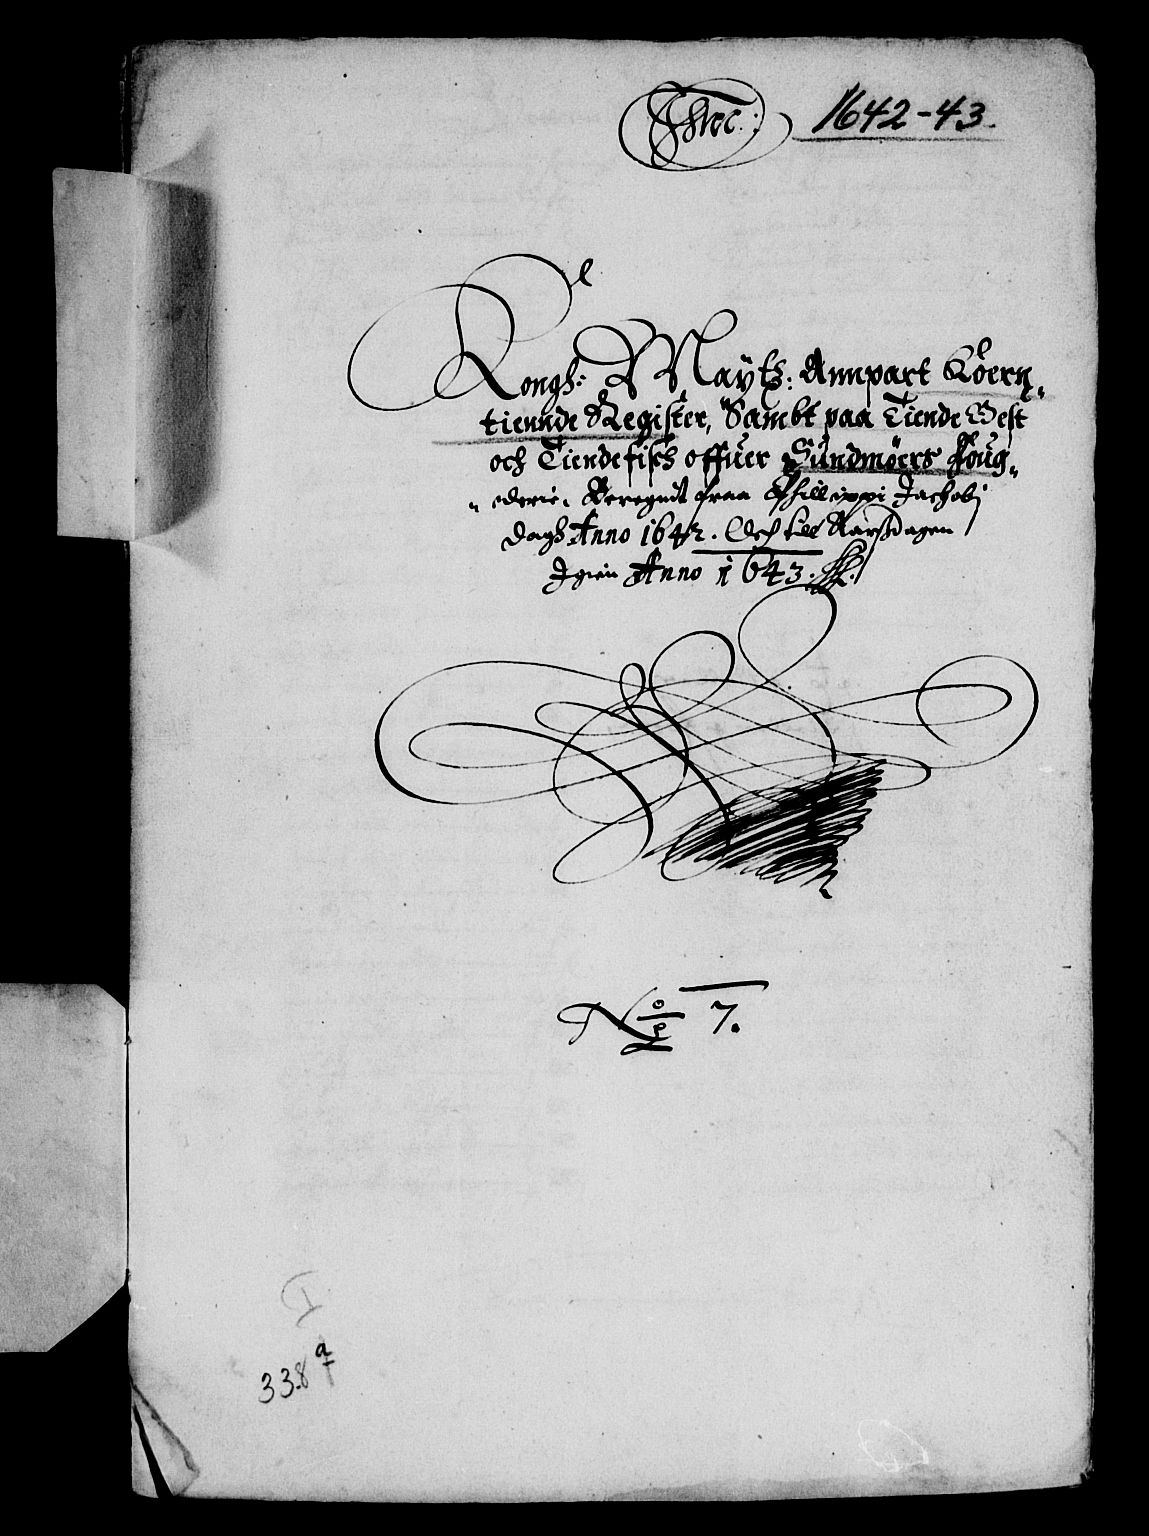 1642-43.
Kongh: Maytz: Annpart Koern,,
tiennde Register, Sambt paa Tiende Gest
och Tiendefisch offuer Sundmøers foug,,
,,derie, Beregnit fraa Phillippi Jachobj
dagh Anno 1642. Och till Aarsdagen
Igien Anno 1643.
No 7.
338 a